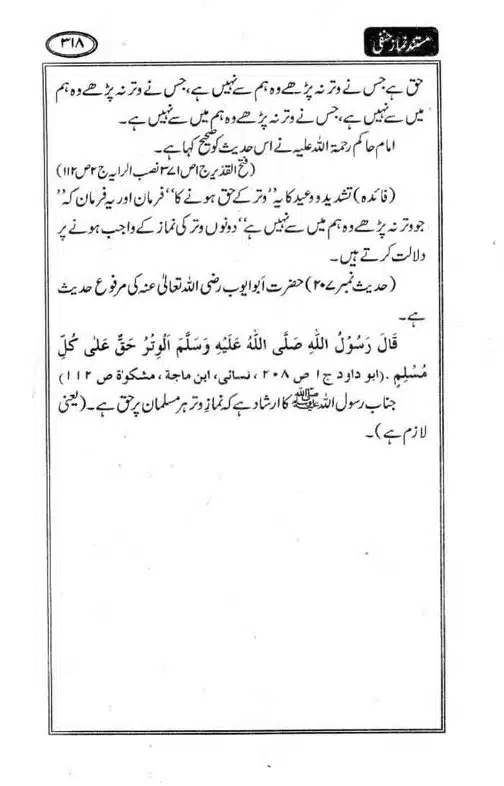 مستند نماز حنفی
۳۱۸
حق ہے جس نے وتر نہ پڑھے وہ ہم سے نہیں ہے، جس نے وتر نہ پڑھے وہ ہم
میں سے نہیں ہے، جس نے وتر نہ پڑھے وہ ہم میں سے نہیں ہے۔
امام حاکم رحمۃ اللہ علیہ نے اس حدیث کو صحیح کہا ہے۔
(فتح القدیر ج۱ ص ۳۷۱ نصب الرایہ ج۲ ص ۱۱۲)
(فائدہ) تشدید و وعید کا یہ ’’وتر کے حق ہونے کا‘‘ فرمان اور یہ فرمان کہ ’’
جو وتر نہ پڑھے وہ ہم میں سے نہیں ہے‘‘ دونوں وتر کی نماز کے واجب ہونے پر
دلالت کرتے ہیں۔
(حدیث نمبر ۲۰۷) حضرت ابو ایوب رضی اللہ تعالیٰ عنہ کی مرفوع حدیث
ہے۔
قَالَ رَسُوْلُ اللّٰهِ صَلَّى اللّٰهُ عَلَيْهِ وَسَلَّمَ اَلْوِتْرُ حَقٌّ عَلٰى كُلِّ
مُسْلِمٍ .(ابو داود ج ۱ ص ۲۰۸، نسائی، ابن ماجة، مشکوٰة ص ۱۱۲)
جناب رسول اللہ ﷺ کا ارشاد ہے کہ نماز وتر ہر مسلمان پر حق ہے۔ (یعنی
لازم ہے)۔